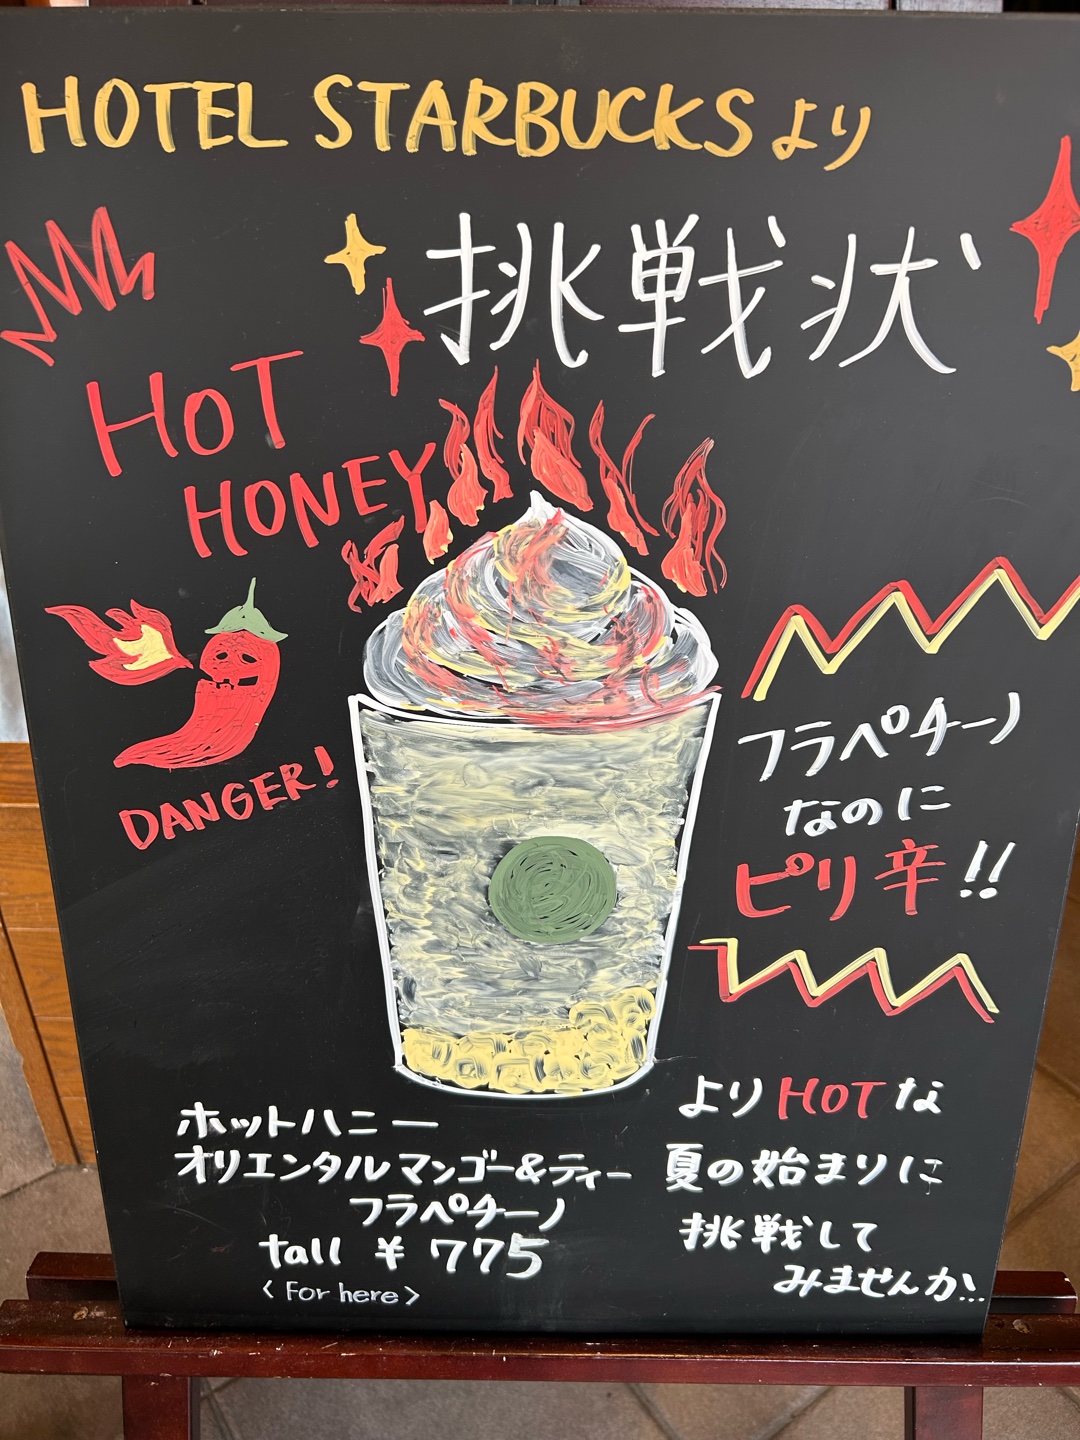 HOTEL STARBUCKSより
挑戦状
HOT
HONEY
DANGER!
フラペチーノ
なのに
ピリ辛!!
ホットハニー
オリエンタルマンゴー&ティー
フラペチーノ
tall ¥775
<For here>
よりHOTな
夏の始まりに
挑戦して
みませんか!..